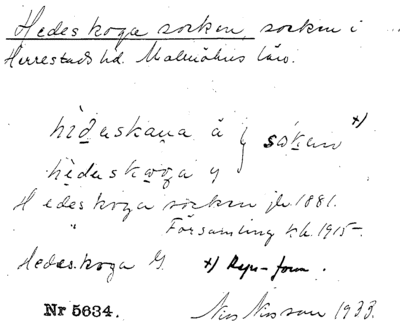 Hedeskoga socken, socken i
Herrestads hd. Malmöhus län.
hìđaskaŋa ä } sókan x)
hèdaskωga y
Hedeskoga socken jb. 1881.
" Församling kb. 1915-.
Hedeskoga G. x) Rspr-form.
Nr 5634. Nils Nilsson 1933.